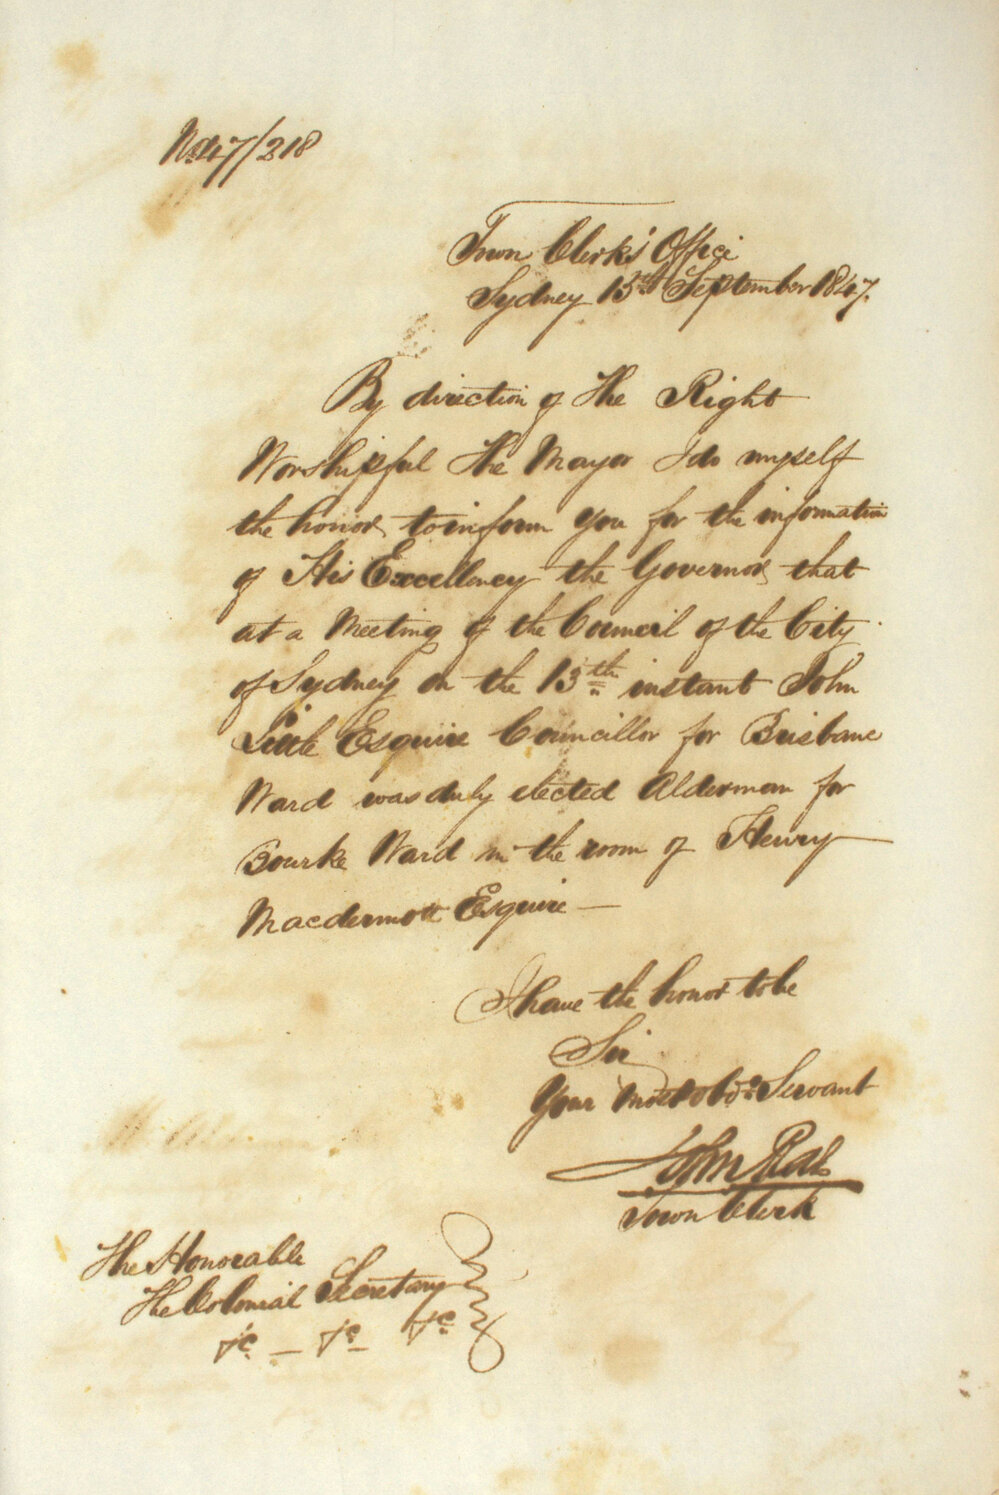 No 47/218
Town Clerk's Office
Sydney 15th September 1847.
By direction of the Right
Worshipful the Mayor I do myself
the honor to inform you for the information
of His Excellency the Governor that
at a Meeting of the Council of the City
of Sydney on the 13th instant John
Little Esquire Councillor for Brisbane
Ward was duly elected Alderman for
Bourke Ward in the room of Henry
Macdermott Esquire —
I have the honor to be
Sir
Your most obdt Servant
John Rae
Town Clerk
The Honorable
The Colonial Secretary
&c — &c &c